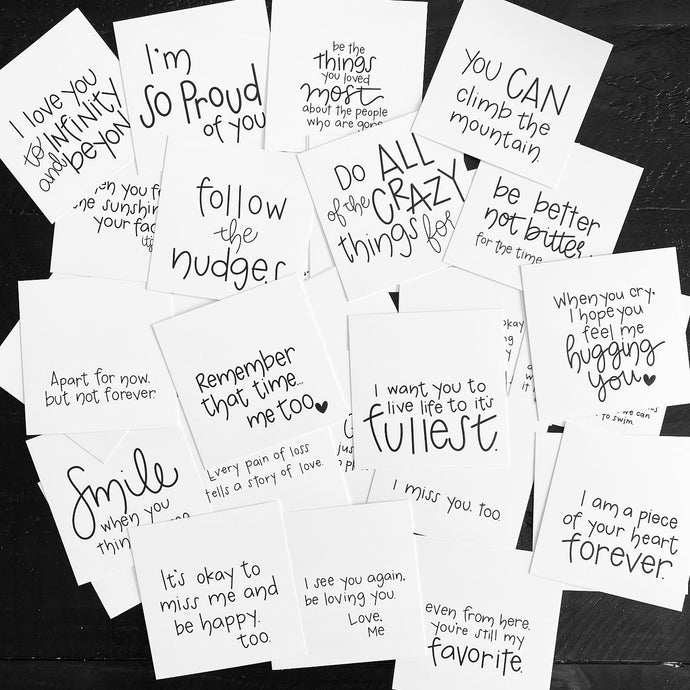 I love you
to infinity
and beyon
I'm
so proud
of you
be the
things
you loved
most
about the people
who are gone
you CAN
climb the
mountain.
en you fe
he sunshin
your fac
follow
the
nudges
Do ALL
of the CRAZY
things for
be better
not bitter
for the time
Apart for now.
but not forever.
Remember
that time...
me too
I want you to
live life to it's
fullest.
okay
When you cry.
I hope you
feel me
hugging
you
we can
to swim.
Smile
when you
thin
Every pain of loss
tells a story of love.
jus
I miss you, too.
I am a piece
of your heart
forever.
It's okay to
miss me and
be happy.
too.
I see you again.
be loving you.
Love,
Me
even from here.
you're still my
favorite.